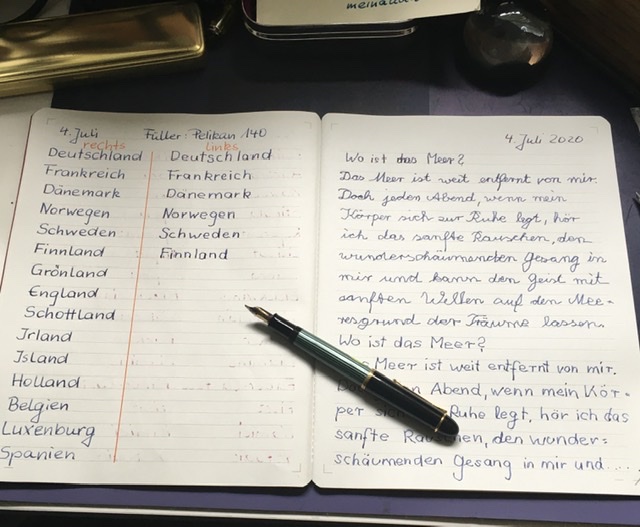 meinander
4. Juli Füller: Pelikan 140
rechts links
Deutschland Deutschland
Frankreich Frankreich
Dänemark Dänemark
Norwegen Norwegen
Schweden Schweden
Finnland Finnland
Grönland
England
Schottland
Irland
Island
Holland
Belgien
Luxenburg
Spanien
4. Juli 2020
Wo ist das Meer?
Das Meer ist weit entfernt von mir.
Doch jeden Abend, wenn mein
Körper sich zur Ruhe legt, hör
ich das sanfte Rauschen, den
wunderschäumenden Gesang in
mir und kann den Geist mit
sanften Wellen auf den Mee-
resgrund der Träume lassen.
Wo ist das Meer?
Meer ist weit entfernt von mir.
Abend, wenn mein Kör-
per Ruhe legt, hör ich das
sanfte den wunder=
schäumenden Gesang in mir und.....